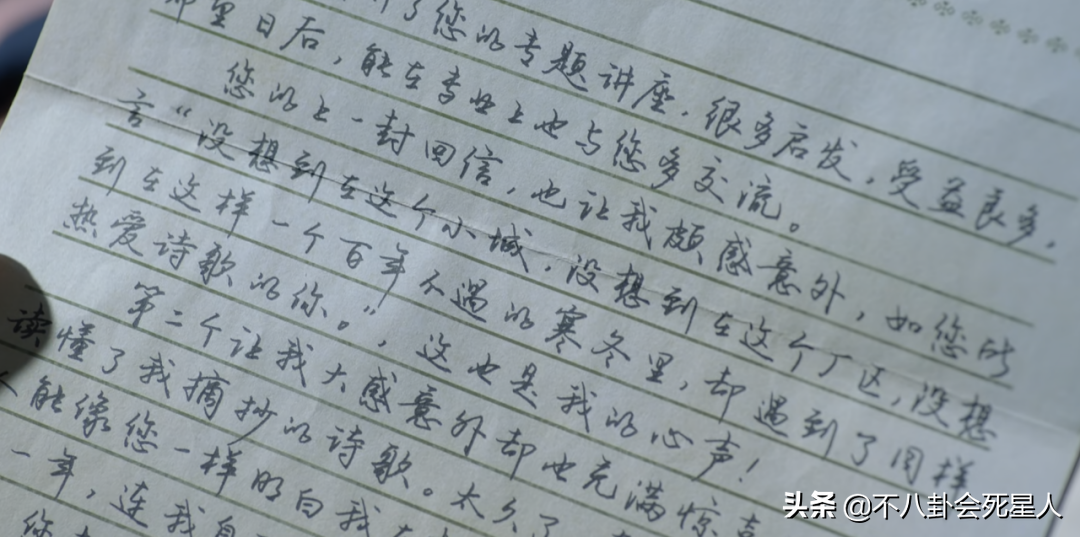 了您的专题讲座,很多启发,受益良多,
日后,能在专业上也与您多交流。
您的上一封回信,也让我颇感意外,如您所
言“没想到在这个小城,没想到在这个厂区,没想
到在这样一个百年不遇的寒冬里,却遇到了同样
热爱诗歌的你。”,这也是我的心声!
第二个让我大感意外却也充满惊喜
读懂了我摘抄的诗歌。太久了
能像您一样明白我
一年,连我
您
头条 @不八卦会死星人